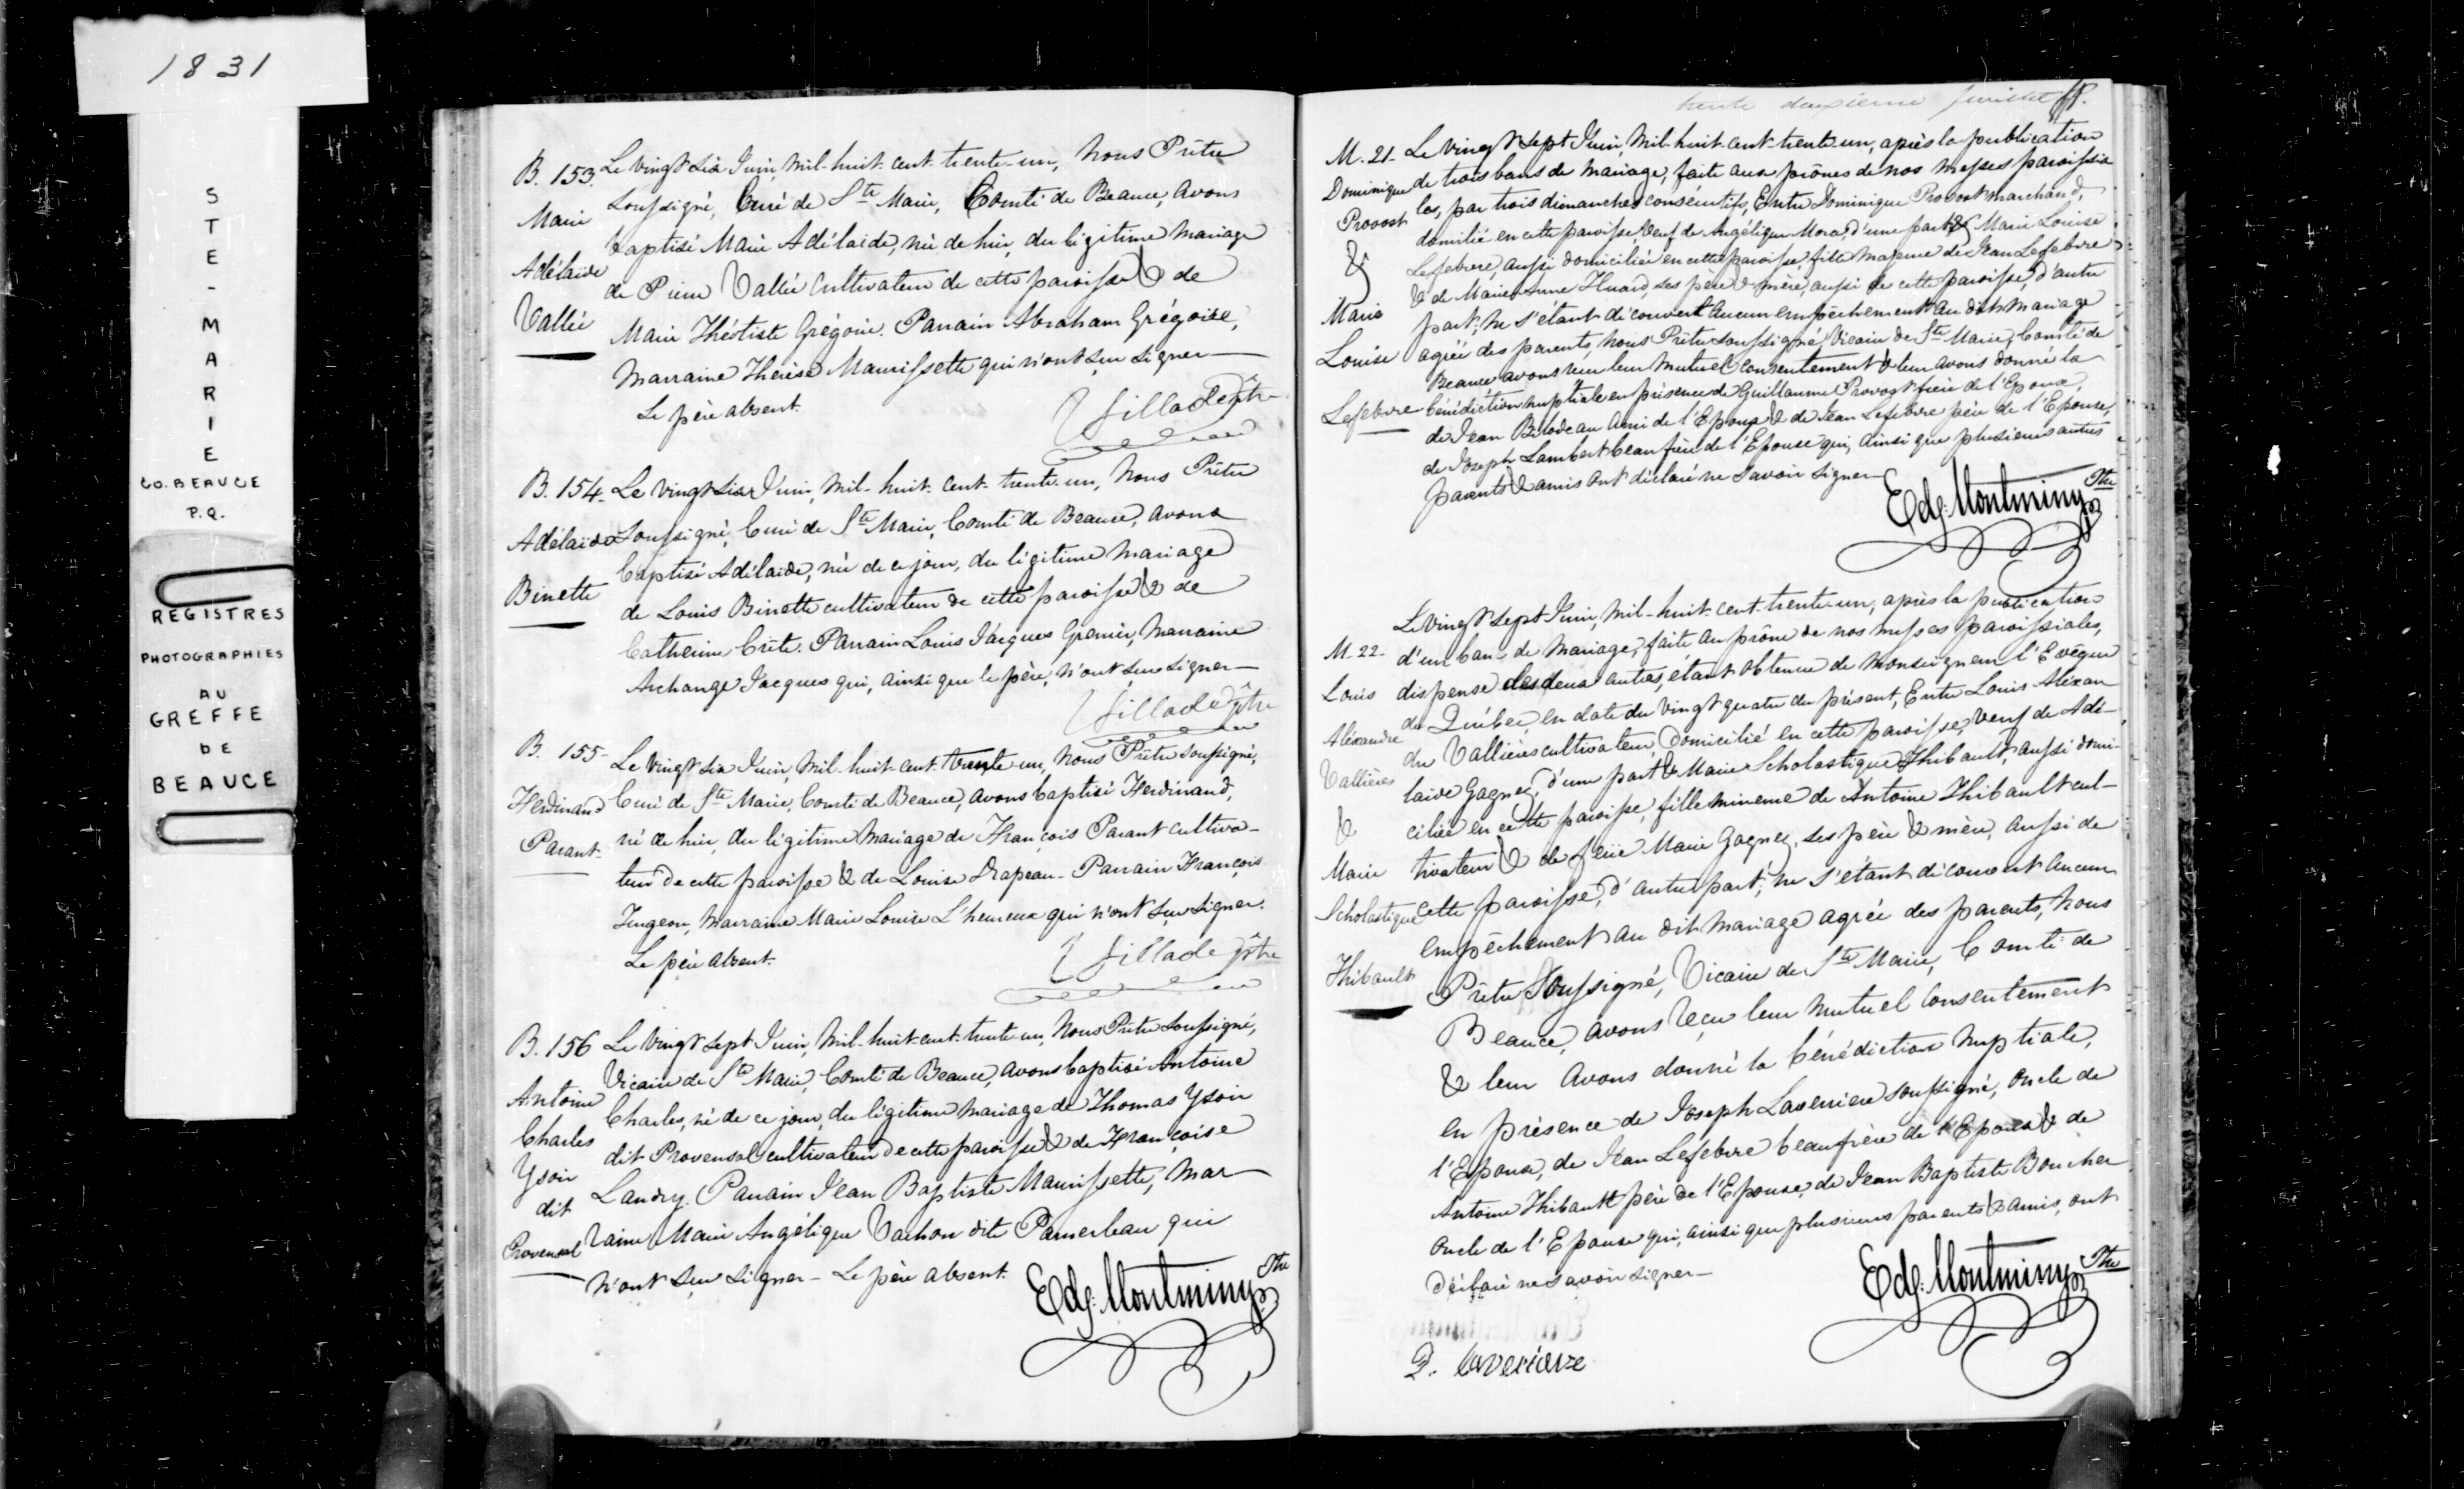 1831
STE-MARIE
CO. BEAUCE
P.Q.
REGISTRES
PHOTOGRAPHIES
AU
GREFFE
DE
BEAUCE
B. 153.
Marie
Adélaïde
Vallée
Le vingt six Juin, mil-huit-cent-trente-un, Nous Prêtre
soussigné, Curé de Ste Marie, Comté de Beauce, avons
baptisé Marie Adélaïde, née de hier, du légitime mariage
de Pierre Vallée cultivateur de cette paroisse & de
Marie Théotiste Grégoire. Parrain Abraham Grégoire,
Marraine Thérèse Maurissette qui n'ont seu signer
Le père absent.
Villade Ptre
B. 154.
Adélaïde
Binette
Le vingt six Juin, mil-huit-cent-trente-un, Nous Prêtre
soussigné, Curé de Ste Marie, Comté de Beauce, avons
baptisé Adélaïde, née de ce jour, du légitime mariage
de Louis Binette cultivateur de cette paroisse & de
Catherine Crête. Parrain Louis Jacques Grenier, Marraine
Archange Jacques qui, ainsi que le père, n'ont seu signer
Villade Ptre
B. 155
Ferdinand
Parant
Le vingt six Juin, mil-huit-cent-trente-un, Nous Prêtre soussigné,
Curé de Ste Marie, Comté de Beauce, avons baptisé Ferdinand,
né de hier, du légitime mariage de François Parant cultiva-
teur de cette paroisse & de Louise Drapeau - Parrain François
Turgeon, Marraine Marie Louise L'heureux qui n'ont seu signer.
Le père absent.
Villade ptre
B. 156
Antoine
Charles
Yvoir
dit
Provensal
Le vingt sept Juin, mil-huit-cent-trente-un, Nous Prêtre soussigné,
Vicaire de Ste Marie, Comté de Beauce, avons baptisé Antoine
Charles, né de ce jour, du légitime mariage de Thomas Yvoir
dit Provensal cultivateur de cette paroisse & de Françoise
Landry. Parrain Jean Baptiste Maurissette, Mar
raine Marie Angélique Vachon dite Pamerleau qui
n'ont seu signer - Le père absent.
Edg: Montminy Ptre
trente deuxieme feuillet
M. 21
Dominique
Provost
&
Marie
Louise
Lefebvre
Le vingt sept Juin, mil-huit-cent-trente-un, après la publication
de trois bans de mariage, faite aux prônes de nos messes paroissia
les, par trois dimanches consécutifs, Entre Dominique Provost marchand,
domilié en cette paroisse, veuf de Angélique Mora, d'une part & Marie Louise
Lefebvre, aussi domiciliée en cette paroisse, fille majeure de Jean Lefebvre
& de Marie Anne Huard, ses père & mère, aussi de cette paroisse, d'autre
part; ne s'étant découvert aucun empêchement au dit mariage
agréé des parents, Nous Prêtre soussigné, Vicaire de Ste Marie, Comté de
Beauce avons reçu leur mutuel consentement & leur avons donné la
bénédiction nuptiale en présence de Guillaume Provost frère de l'Epoux,
de Jean Bilodeau ami de l'Epoux & de Jean Lefebvre père de l'Epouse,
de Joseph Lambert beau frère de l'Epouse qui, ainsi que plusieurs autres
parents & amis ont déclaré ne savoir signer
Edg: Montminy Ptre
M. 22
Louis
Alexandre
Vallières
&
Marie
Scholastique
Thibault
Le vingt sept Juin, mil-huit-cent-trente-un, après la publication
d'un ban de mariage, faite au prône de nos messes paroissiales,
dispense des deux autres, étant obtenue de Monseigneur l'Evêque
de Québec, en date du vingt quatre du présent, Entre Louis Alexan
dre Vallières cultivateur, domicilié en cette paroisse, veuf de Adé-
laïde Gagner, d'une part & Marie Scholastique Thibault, aussi domi-
ciliée en cette paroisse, fille mineure de Antoine Thibault cul-
tivateur & de feüe Marie Gagner, ses père & mère, aussi de
cette paroisse, d'autre part; ne s'étant découvert aucun
empêchement au dit mariage agréé des parents, Nous
Prêtre soussigné, Vicaire de Ste Marie, Comté de
Beauce, avons reçu leur mutuel consentement
& leur avons donné la bénédiction nuptiale,
en présence de Joseph Laverriere soussigné, oncle de
l'Epoux, de Jean Lefebvre beaufrère de l'Epoux & de
Antoine Thibault père de l'Epouse, de Jean Baptiste Boucher
oncle de l'Epouse qui, ainsi que plusieurs parents & amis, ont
déclaré ne savoir signer
Edg: Montminy Ptre